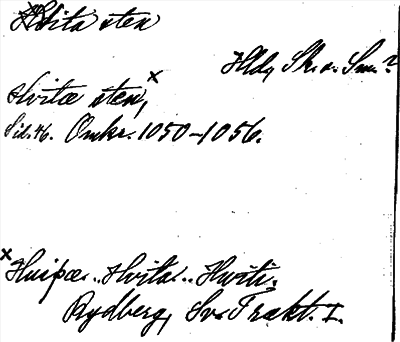 Hvita sten
Hld, Sk. o. Sm.?
Hvitæ sten,x
Sid. 46. Omkr. 1050–1056.
x Huiþæ.. Hvita.. Hwiti.
Rydberg, Sv. Trakt. I.